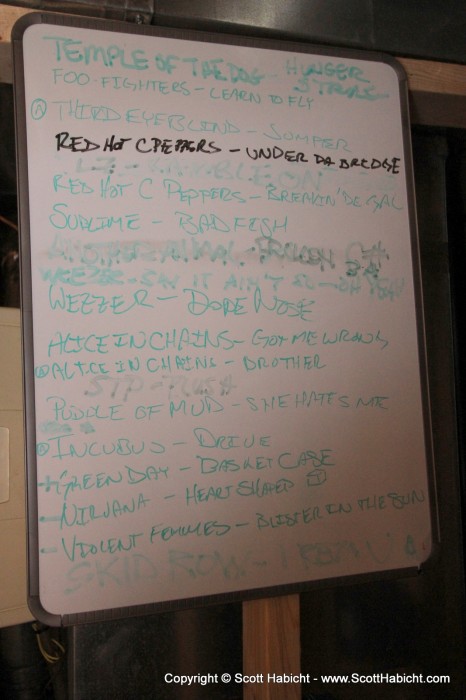 TEMPLE OF THE DOG - HUNGER
STRIKE
FOO-FIGHTERS - LEARN TO FLY
Ⓐ THIRD EYE BLIND - JUMPER
RED HOT C PEPPERS - UNDER DA BRIDGE
ON
RED HOT C PEPPERS - BREAKIN' DE GAL
SUBLIME - BADFISH
WEEZER - SAY IT AIN'T SO - OH YEAH
WEEZER - DOPE NOSE
ALICE IN CHAINS - GOT ME WRONG
Ⓐ ALICE IN CHAINS - BROTHER
STP - PLUSH
PUDDLE OF MUD - SHE HATES ME
Ⓐ INCUBUS - DRIVE
- GREEN DAY - BASKET CASE
- NIRVANA - HEART SHAPED
- VIOLENT FEMMES - BLISTER IN THE SUN
SKID ROW - I REMM
Copyright © Scott Habicht - www.ScottHabicht.com